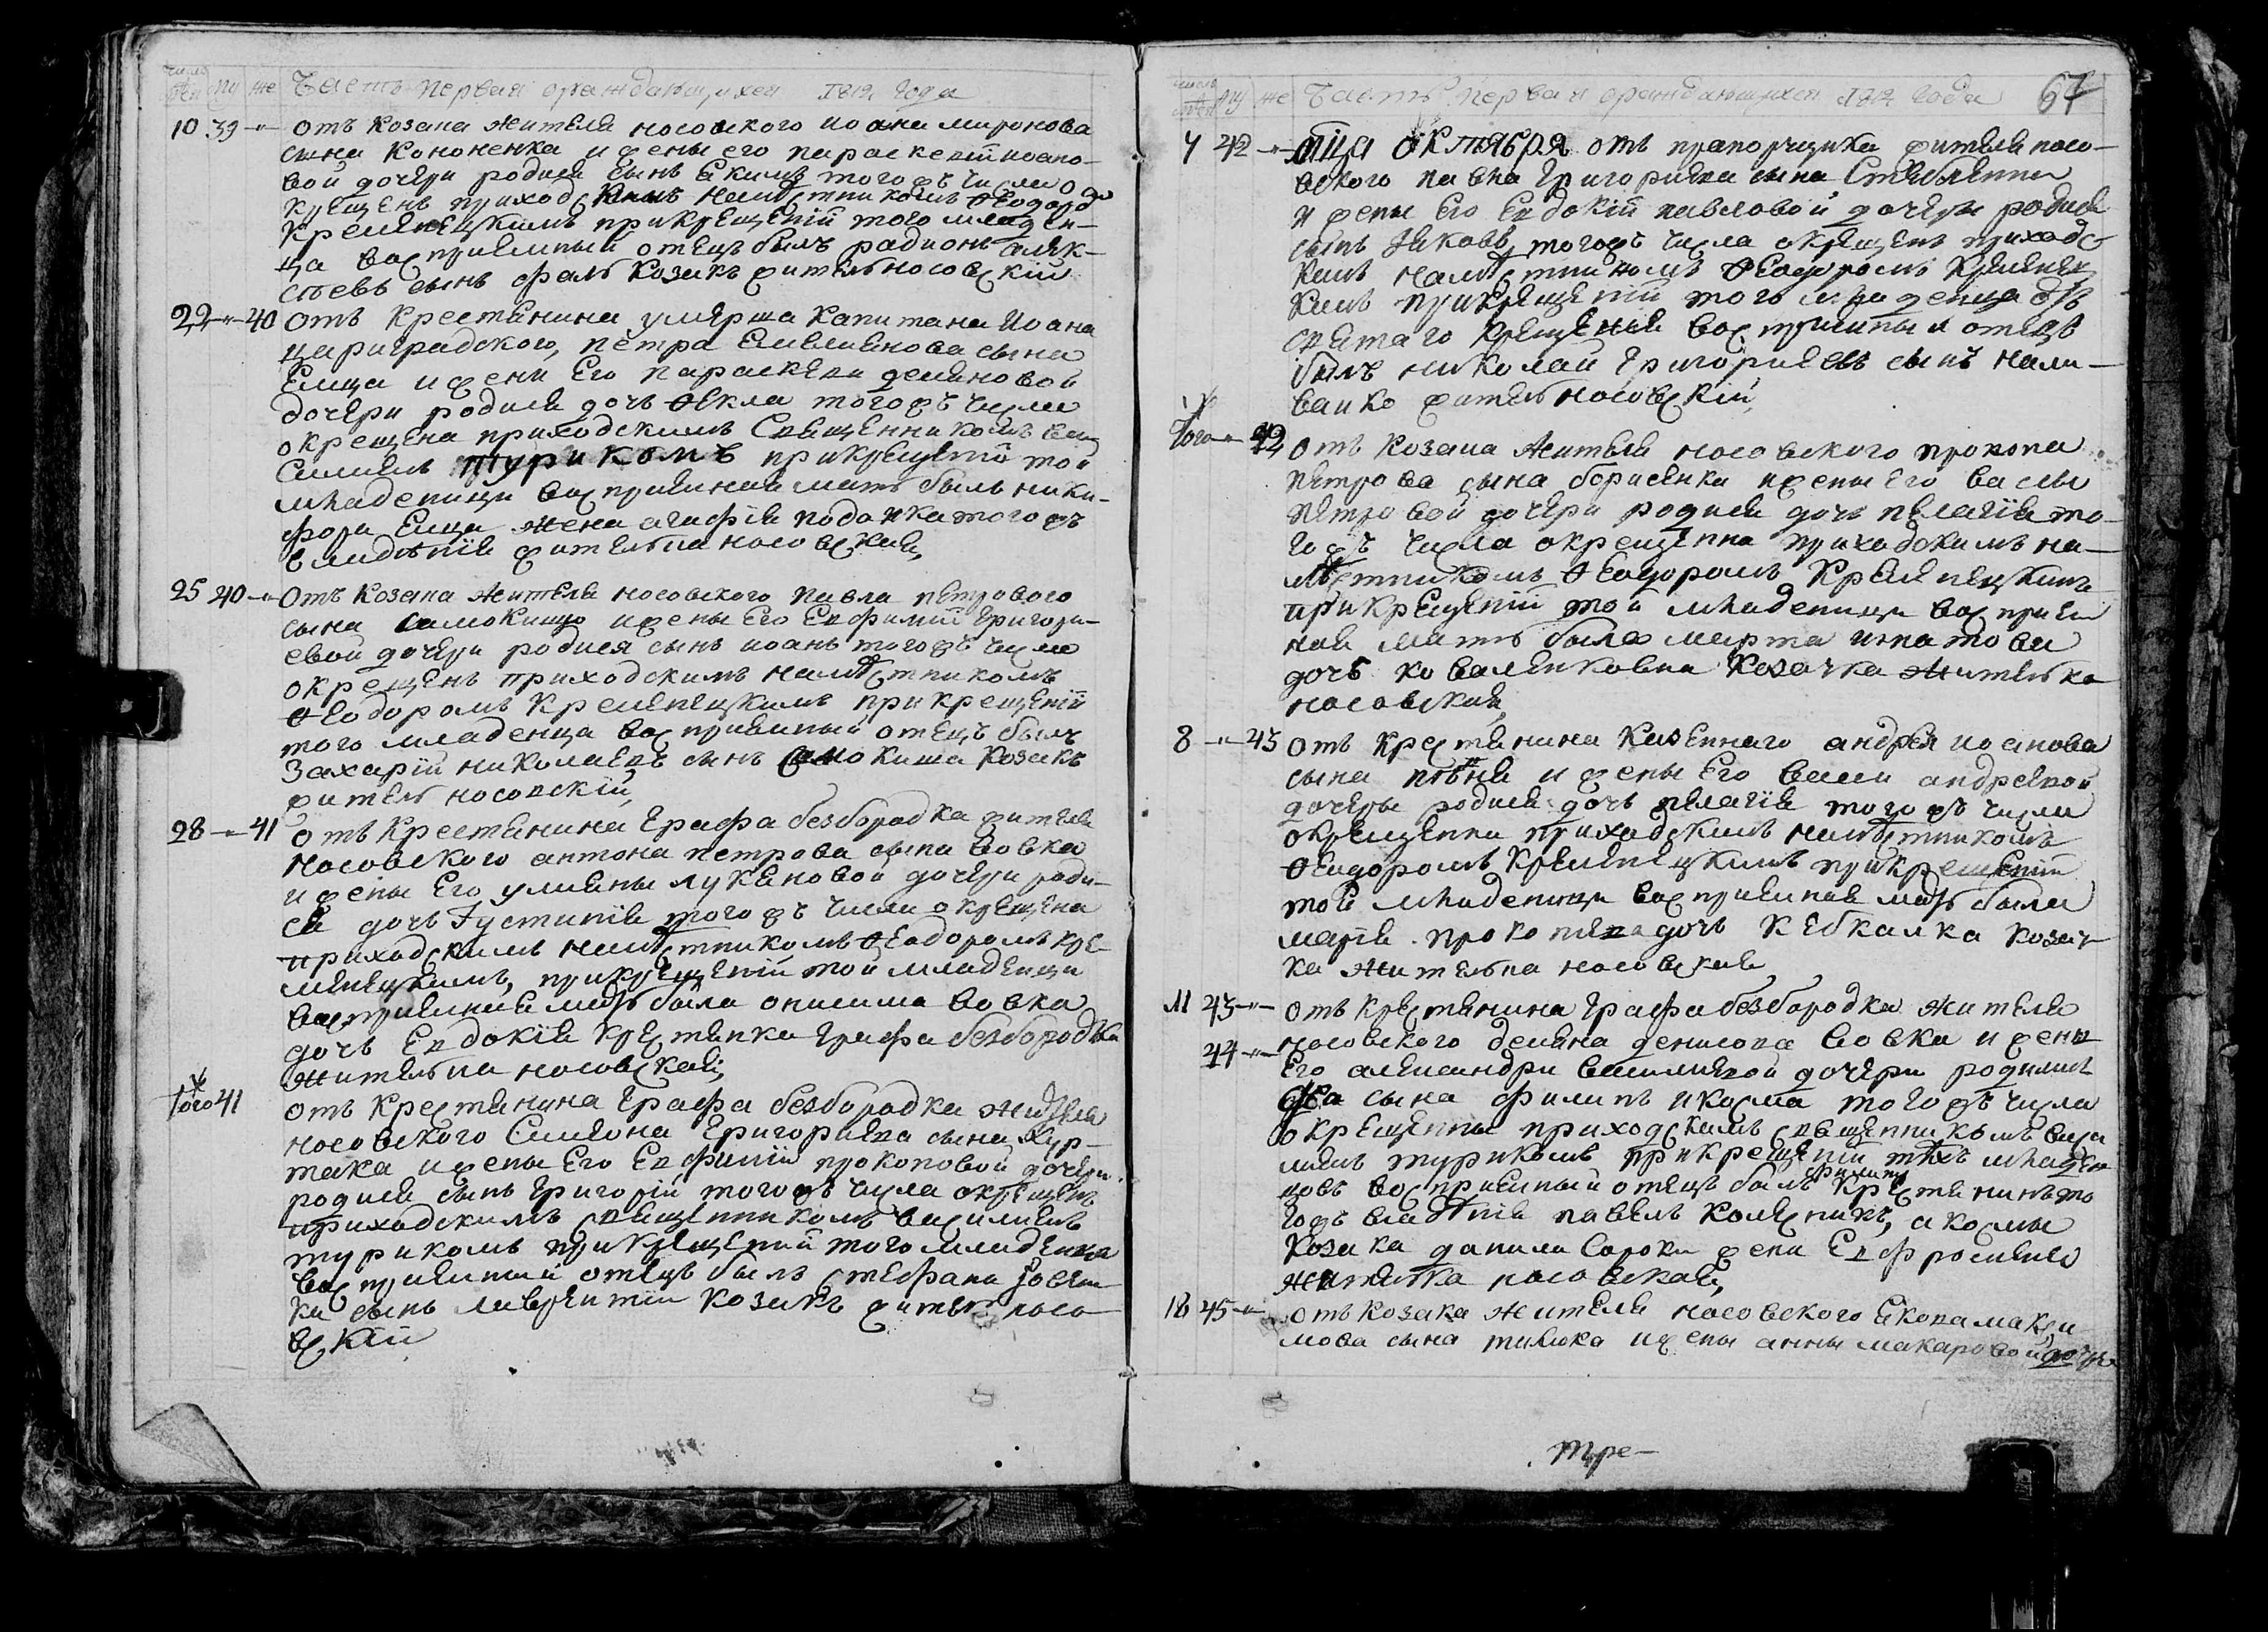 число рожден му же Часть первая о раждающихся 1812 года
10 39 -"- отъ козака жителя носовского иоана миронова
сына Кононенка и жены его параскевіи иоано-
вой дочери родися сынъ Екимъ того жъ числа о
крещенъ приходскимъ намѣстникомъ Ѳеодоромъ
Кременецкимъ прикрещеніи того младен-
ца воспріемный отецъ былъ радионъ алек-
сѣевъ сынъ козакъ житель носовскій
22 -"- 40 отъ Крестянина умерша капитана Иоана
цариградского, петра Емелиянова сына
Емца и жени Его параскеви демяновой
дочери родися дочъ Ѳекла того жъ числа
окрещена приходскимъ Священникомъ Васи
Силиемъ Туриkомъ прикрещеніи той
младеници воспріемная мать былъ ники-
фора Емца жена агафія подданка того жъ
владѣнія жителька носовская,
25 40 -"- Отъ Козака жителя носовского павла петрового
сына Самокищо и жены Его Евфиміи григори-
евой дочери родися сынъ иоанъ того жъ числа
окрещенъ приходскимъ намѣстникомъ
Ѳеодоромъ Кременецкимъ при крещеніи
того младенца воспріемный отецъ былъ
Захарій николаевъ сынъ Самокиша козакъ
житель носовскій,
28 -"- 41 отъ Крестянина Графа безбородка жителя
носовского антона петрова сына Вовка
и жены Его улияны лукяновой дочери роди-
ся дочъ Іустинія того жъ числа окрещена
приходскимъ намѣстникомъ Ѳеодоромъ Кре-
менецкимъ, прикрещеніи той младеници
воспріемная мать была онисима вовка
дочъ Евдокія крестянка графа безбородька
жителька носовская,
Того ж 41 отъ Крестянина Графа безбородка жителя
носовского Симеона григориева сына Кур-
мака и жены Его Евфиміи прокоповой дочери
родися сынъ григорій того жъ числа окрещенъ
приходскимъ священникомъ василиемъ
туриkомъ прикрещеніи того младенца
воспріемный отецъ былъ стефана
ка сынъ лаврентій козакъ житель носо-
вскій
число рожден му же Часть первая о раждающихся 1812 года 67
4 42 -"- мца октября отъ прапорщика жителя носо-
вского павла григориева сына
и жены Его Евдокіи павловой дочери родися
сынъ Іяковъ, того жъ числа окрещенъ приходс
кимъ намѣстникомъ Ѳеодоромъ Кременец
кимъ прикрещеніи того младенца отъ
святаго крещенія воспріемный отецъ
былъ николай григориевъ сынъ нали-
вайко житель носовскій,
Того ж -"- 42 отъ козака жителя носовского прокопа
петрова сына борисенка и жены Его васы
петровой дочери родися дочъ пелагія то-
го жъ числа окрещенна приходскимъ на-
мѣстникомъ Ѳеодоромъ Кременецкимъ
при крещеніи той младеници воспріем
ная мать была марта игнатова
дочъ коваленковна козачка жителька
носовская,
8 -"- 43 отъ крестянина казеннаго андрея иоанова
сына и жены Его васы андреевой
дочери родися дочъ пелагія того жъ числа
окрещенна приходскимъ намѣстникомъ
Ѳеодоромъ Кременецкимъ при крещеніи
той младеници воспріемная мать была
марія прокопиева дочъ Кебкалка козач-
ка жителька носовская
11 43 -"- отъ крестянина Графа безбородка жителя
44 -"- носовского демяна денисова вовка и жены
Его александри василиевой дочери родились
два сына филипъ и косма того жъ числа
окрещенны приходскимъ священникомъ васи
лиемъ туриkомъ прикрещеніи тѣхъ младен
цовъ воспріемный отецъ былъ филипу крестянинъ то
гожъ владѣнія павелъ колесникъ, а космы
козака данила Сороки жена Евфросинія
жителька носовская,
18 45 -"- отъ козака жителя носовского Екова макси
мова сына и жены анны макаровой дочери
тре-